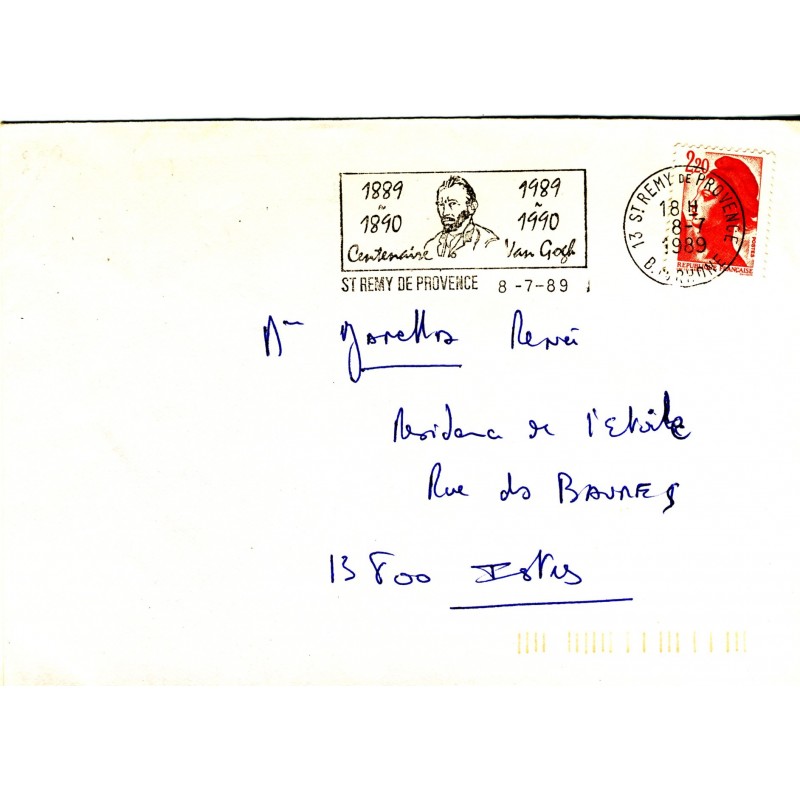 1889 1989
1890 1990
Centenaire Van Gogh
ST REMY DE PROVENCE 8-7-89
2,20
13 ST REMY DE PROVENCE
18 H
8-7
1989
B. DU RHONE
POSTES
REPUBLIQUE FRANÇAISE
René
Residence de l'Etoile
Rue des BAUMES
13800 Istres